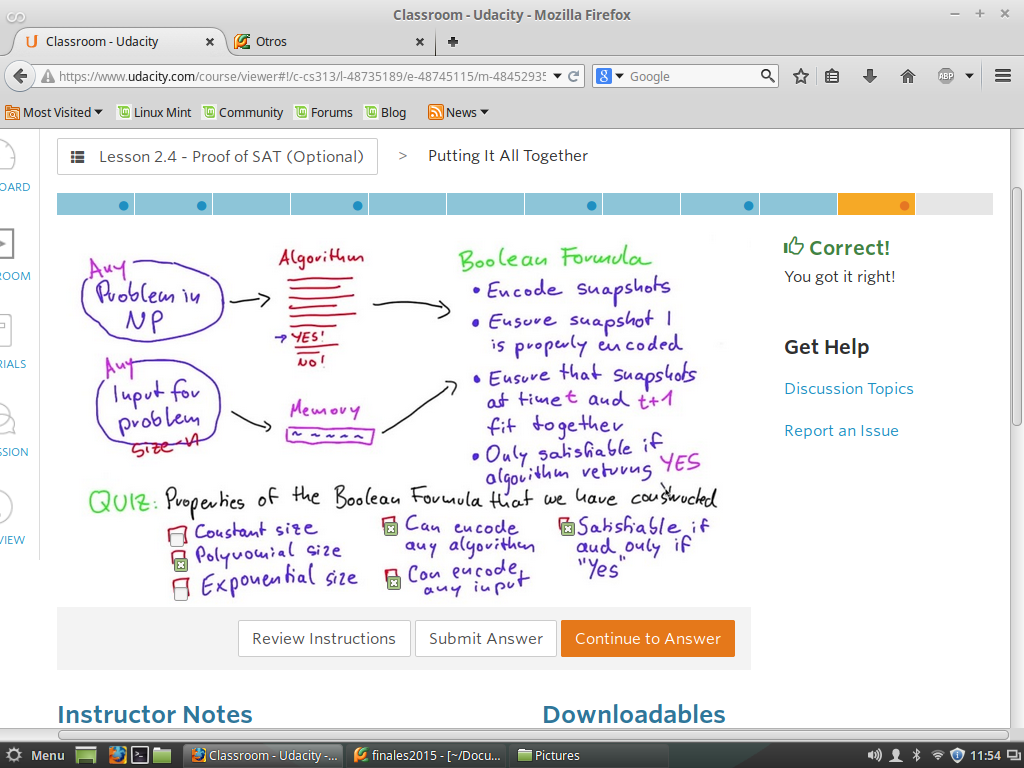 Classroom - Udacity - Mozilla Firefox
Classroom - Udacity
Otros
https://www.udacity.com/course/viewer#!/c-cs313/l-48735189/e-48745115/m-4845293
Google
ABP
Most Visited
Linux Mint
Community
Forums
Blog
News
Lesson 2.4 - Proof of SAT (Optional)
>
Putting It All Together
OARD
ROOM
RIALS
SSION
VIEW
Any
Problem in
NP
Algorithm
YES!
NO!
Any
Input for
problem
size n
Memory
Boolean Formula
• Encode snapshots
• Ensure snapshot 1
is properly encoded
• Ensure that snapshots
at time t and t+1
fit together
• Only satisfiable if
algorithm returns YES
QUIZ: Properties of the Boolean Formula that we have constructed
Constant size
Polynomial size
Exponential size
Can encode
any algorithm
Can encode
any input
Satisfiable if
and only if
"Yes"
Correct!
You got it right!
Get Help
Discussion Topics
Report an Issue
Review Instructions
Submit Answer
Continue to Answer
Instructor Notes
Downloadables
Menu
Classroom - Udacity -...
finales2015 - [~/Docu...
Pictures
11:54